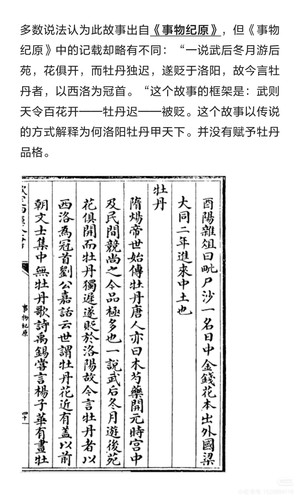 多数说法认为此故事出自《事物纪原》，但《事
物纪原》中的记载却略有不同：“一说武后冬月游后
苑，花俱开，而牡丹独迟，遂贬于洛阳，故今言牡
丹者，以西洛为冠首。“这个故事的框架是：武则
天令百花开——牡丹迟——被贬。这个故事以传说
的方式解释为何洛阳牡丹甲天下。并没有赋予牡丹
品格。
酉陽雜俎曰毗尸沙一名日中金錢花本出外國梁
大同二年進來中土也
牡丹
隋煬帝世始傳牡丹唐人亦曰木芍藥開元時宮中
及民間競尚之今品極多也一說武后冬月遊後苑
花俱開而牡丹獨遲遂貶於洛陽故今言牡丹者以
西洛為冠首劉公嘉話云世謂牡丹花近有蓋以前
朝文士集中無牡丹歌詩禹錫嘗言楊子華有畫牡
事物紀原